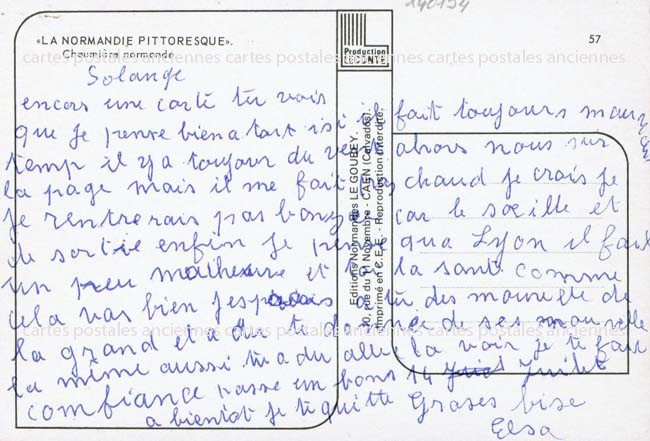 140154
«LA NORMANDIE PITTORESQUE».
Chaumière normande
57
Production
LECONTE
Editions Normandes LE GOUBEY.
30, rue du 11 Novembre - CAEN (Calvados)
Imprimé en C.E.E. - Reproduction interdite.
cartes postales anciennes cartes postales anciennes cartes postales anciennes
Solange
encors une carte tu vois il fait toujours mauvais
que Je pense bien a toit isi
temp il y a toujour du vent alors nous sur
la page mais il me fait pas chaud Je crois Je
Je rentrerais pas bonzé car le soeille et
de sortie enfin Je pense qua Lyon il fait
un peu malheure et la santé comme
cela vas bien J'espaire tu des mouvelle de
la grand et a du te donnée de ses mouvelle
la même aussi tu a du allée la voir je te fait
comfiance passe un bons 14 Juilet
a bientot Je te quitte Grases bise
Elsa
cartes postales anciennes cartes postales anciennes cartes postales anciennes